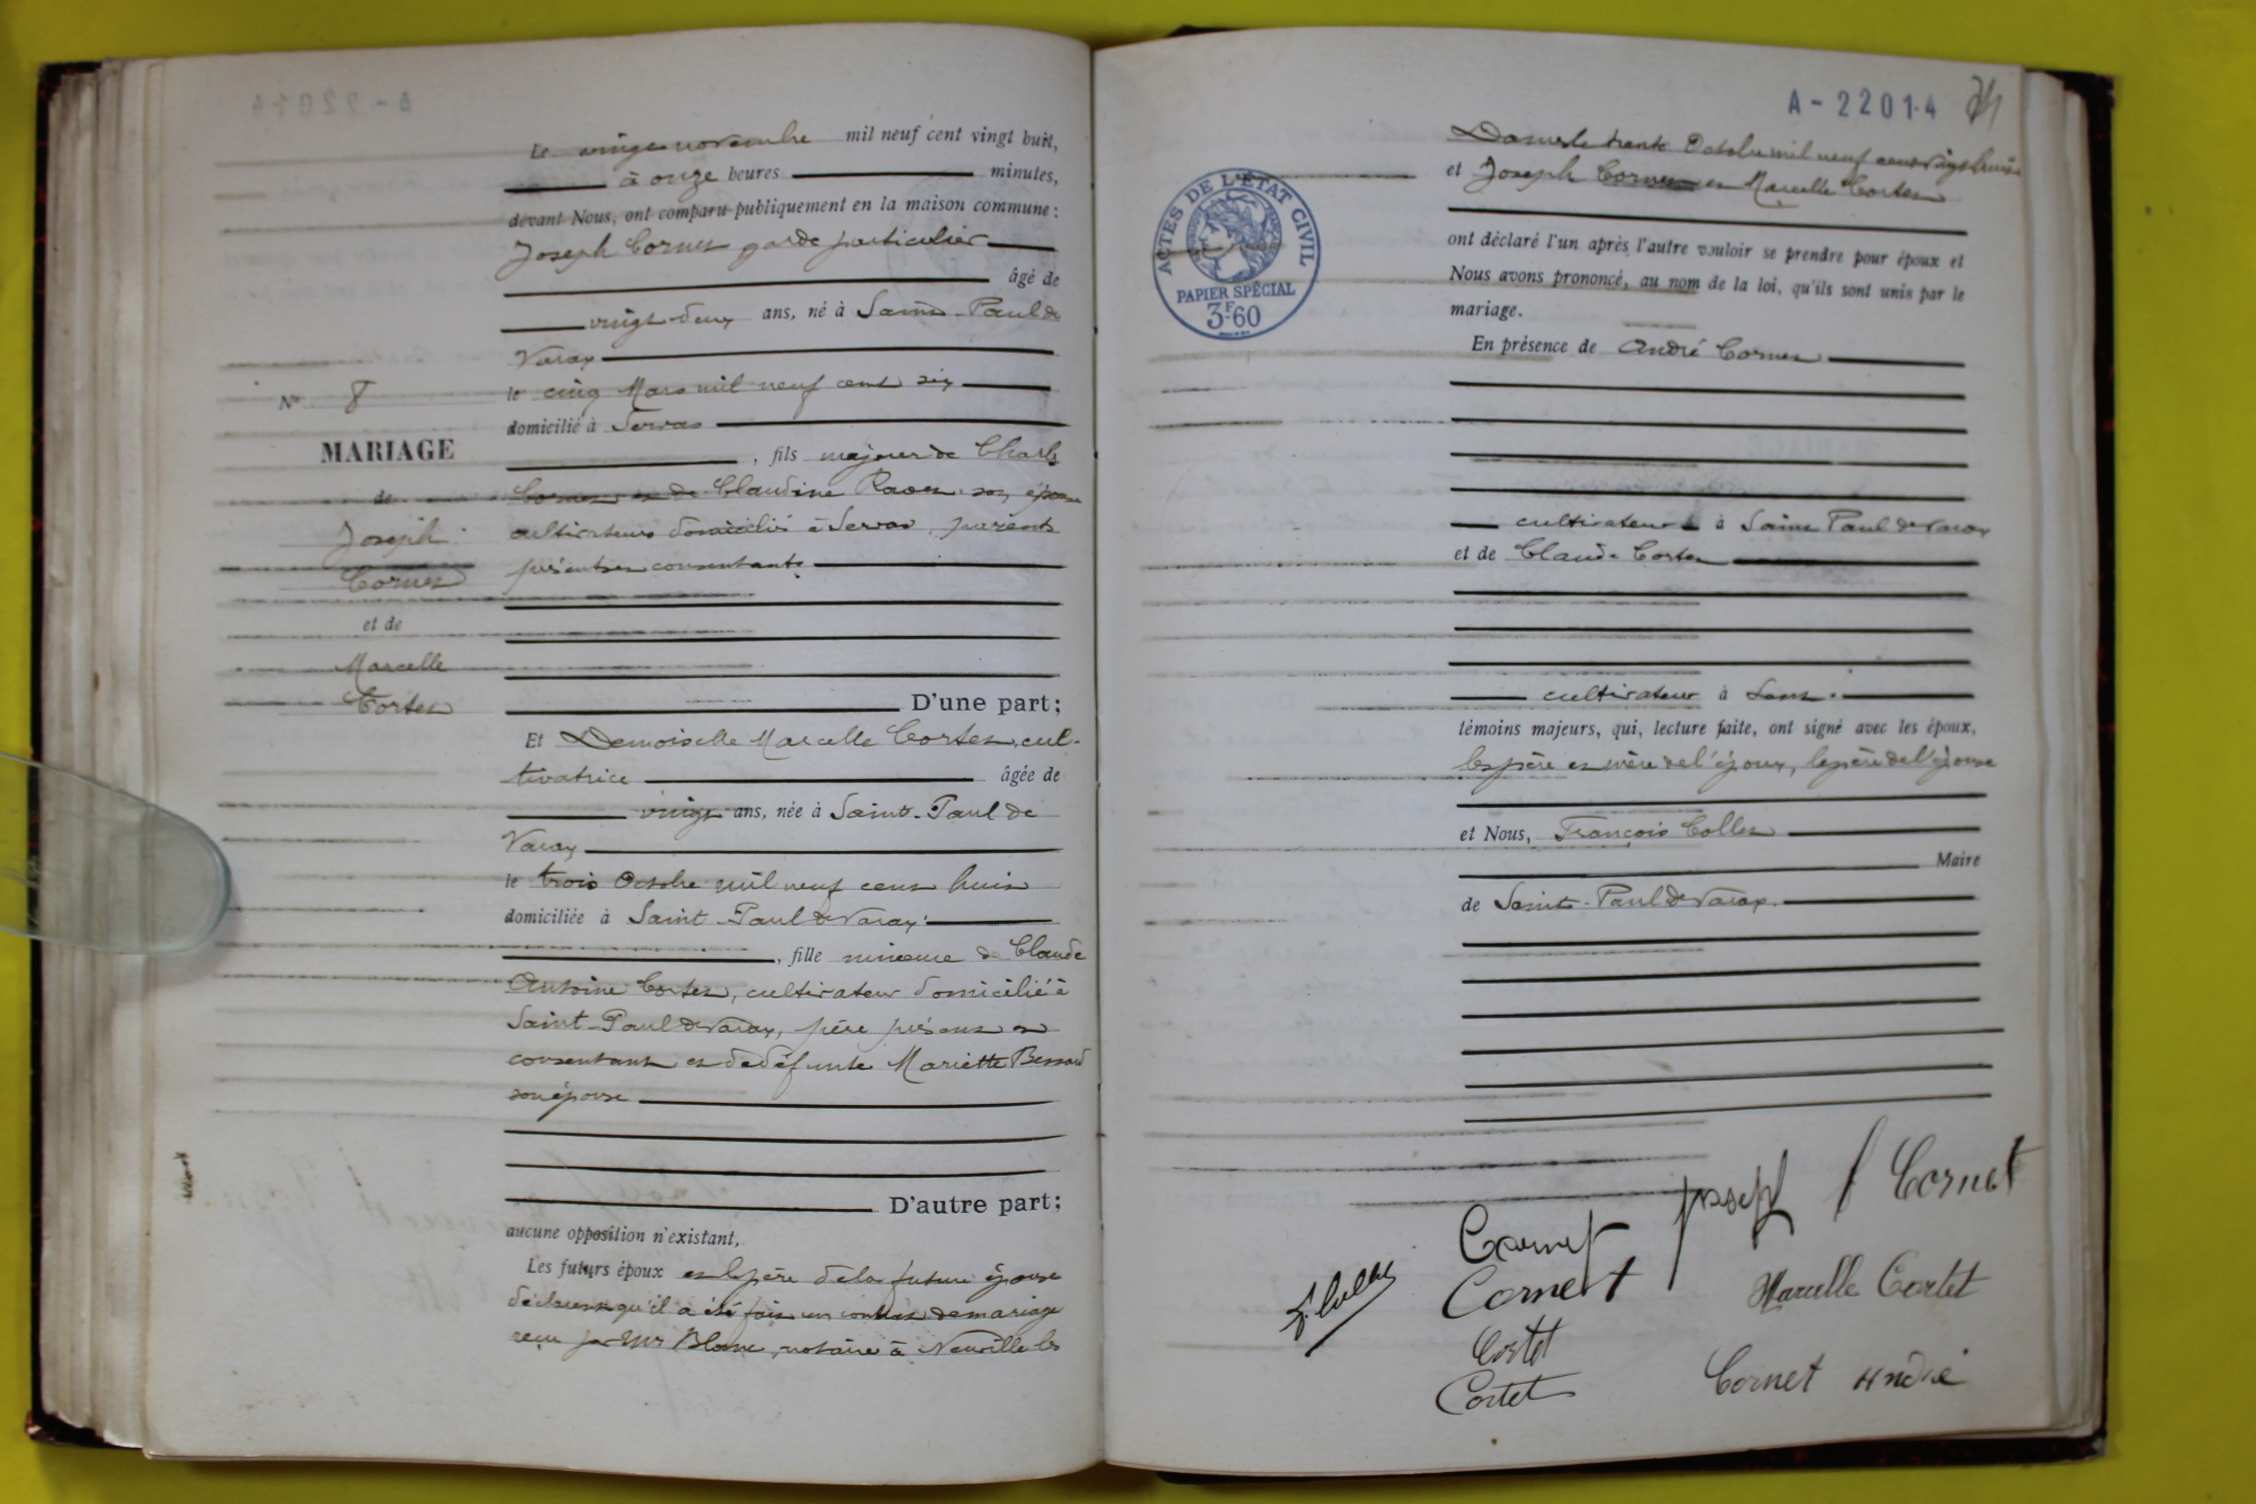 Le vingt novembre mil neuf cent vingt huit,
à onze heures minutes,
devant Nous, ont comparu publiquement en la maison commune :
Joseph Cornet garde particulier
âgé de
vingt-deux ans, né à Saint-Paul de
Varax
le cinq Mars mil neuf cent six
domicilié à Servas
, fils majeur de Charles
Cornet et de Claudine Ravet son épouse
cultivateurs domiciliés à Servas, parents
présents et consentants
D'une part ;
Et Demoiselle Marcelle Cortet, cul-
tivatrice âgée de
vingt ans, née à Saint-Paul de
Varax
le trois Octobre mil neuf cent huit
domiciliée à Saint-Paul de Varax.
, fille mineure de Claude
Antoine Cortet, cultivateur domicilié à
Saint-Paul de Varax, père présent et
consentant et de défunte Mariette Bessard
son épouse
D'autre part ;
aucune opposition n'existant,
Les futurs époux et le père de la future épouse
déclarent qu'il a été fait un contrat de mariage
reçu par Me Blanc, notaire à Neuville les
N° 8
MARIAGE
de
Joseph
Cornet
et de
Marcelle
Cortet
A-22014
Dames le trente Octobre mil neuf cent vingt huit
et Joseph Cornet et Marcelle Cortet
ont déclaré l'un après l'autre vouloir se prendre pour époux et
Nous avons prononcé, au nom de la loi, qu'ils sont unis par le
mariage.
En présence de André Cornet
cultivateur à Saint Paul de Varax
et de Claude Cortet
cultivateur à
témoins majeurs, qui, lecture faite, ont signé avec les époux,
les père et mère de l'époux, le père de l'épouse
et Nous, François Collet
Maire
de Saint-Paul de Varax.
ACTES DE L'ÉTAT CIVIL
PAPIER SPÉCIAL
3F.60
Joseph Cornet
Cornet
Cornet
Marcelle Cortet
Cortet
Cortet
Cornet André